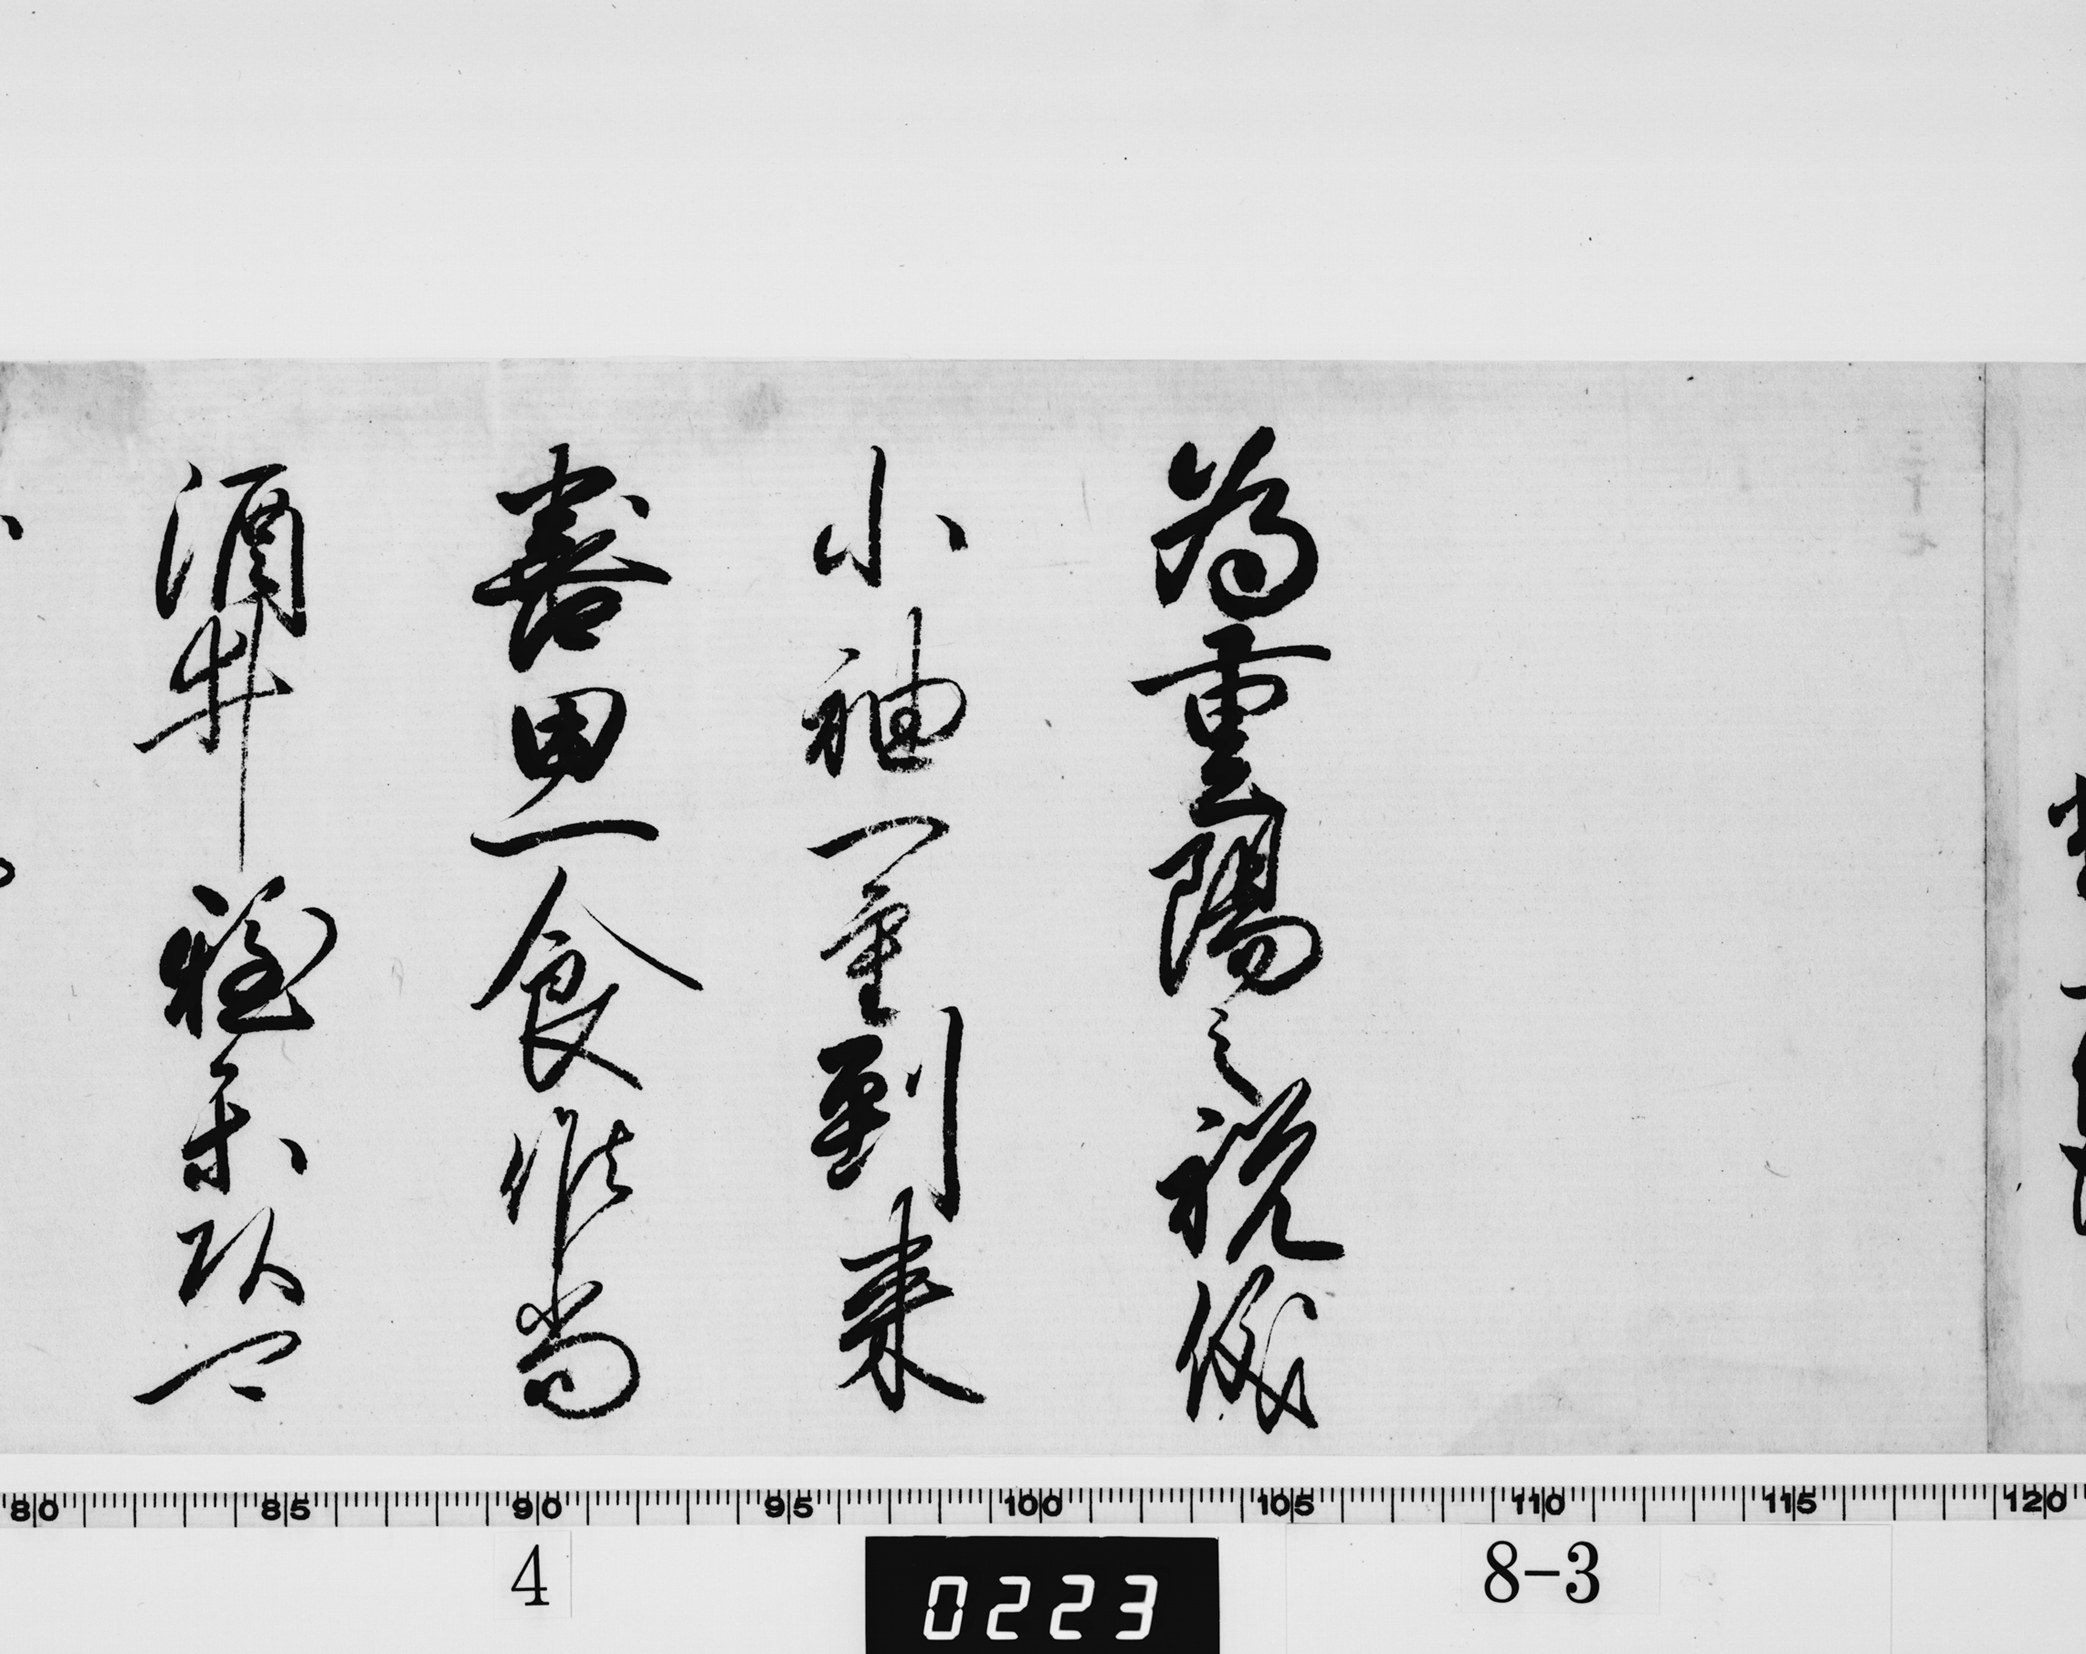 為重陽之祝儀
小袖一重到来
喜思食候尚
酒井雅楽頭可
80 85 90 95 100 105 110 115 120
4
0223
8-3